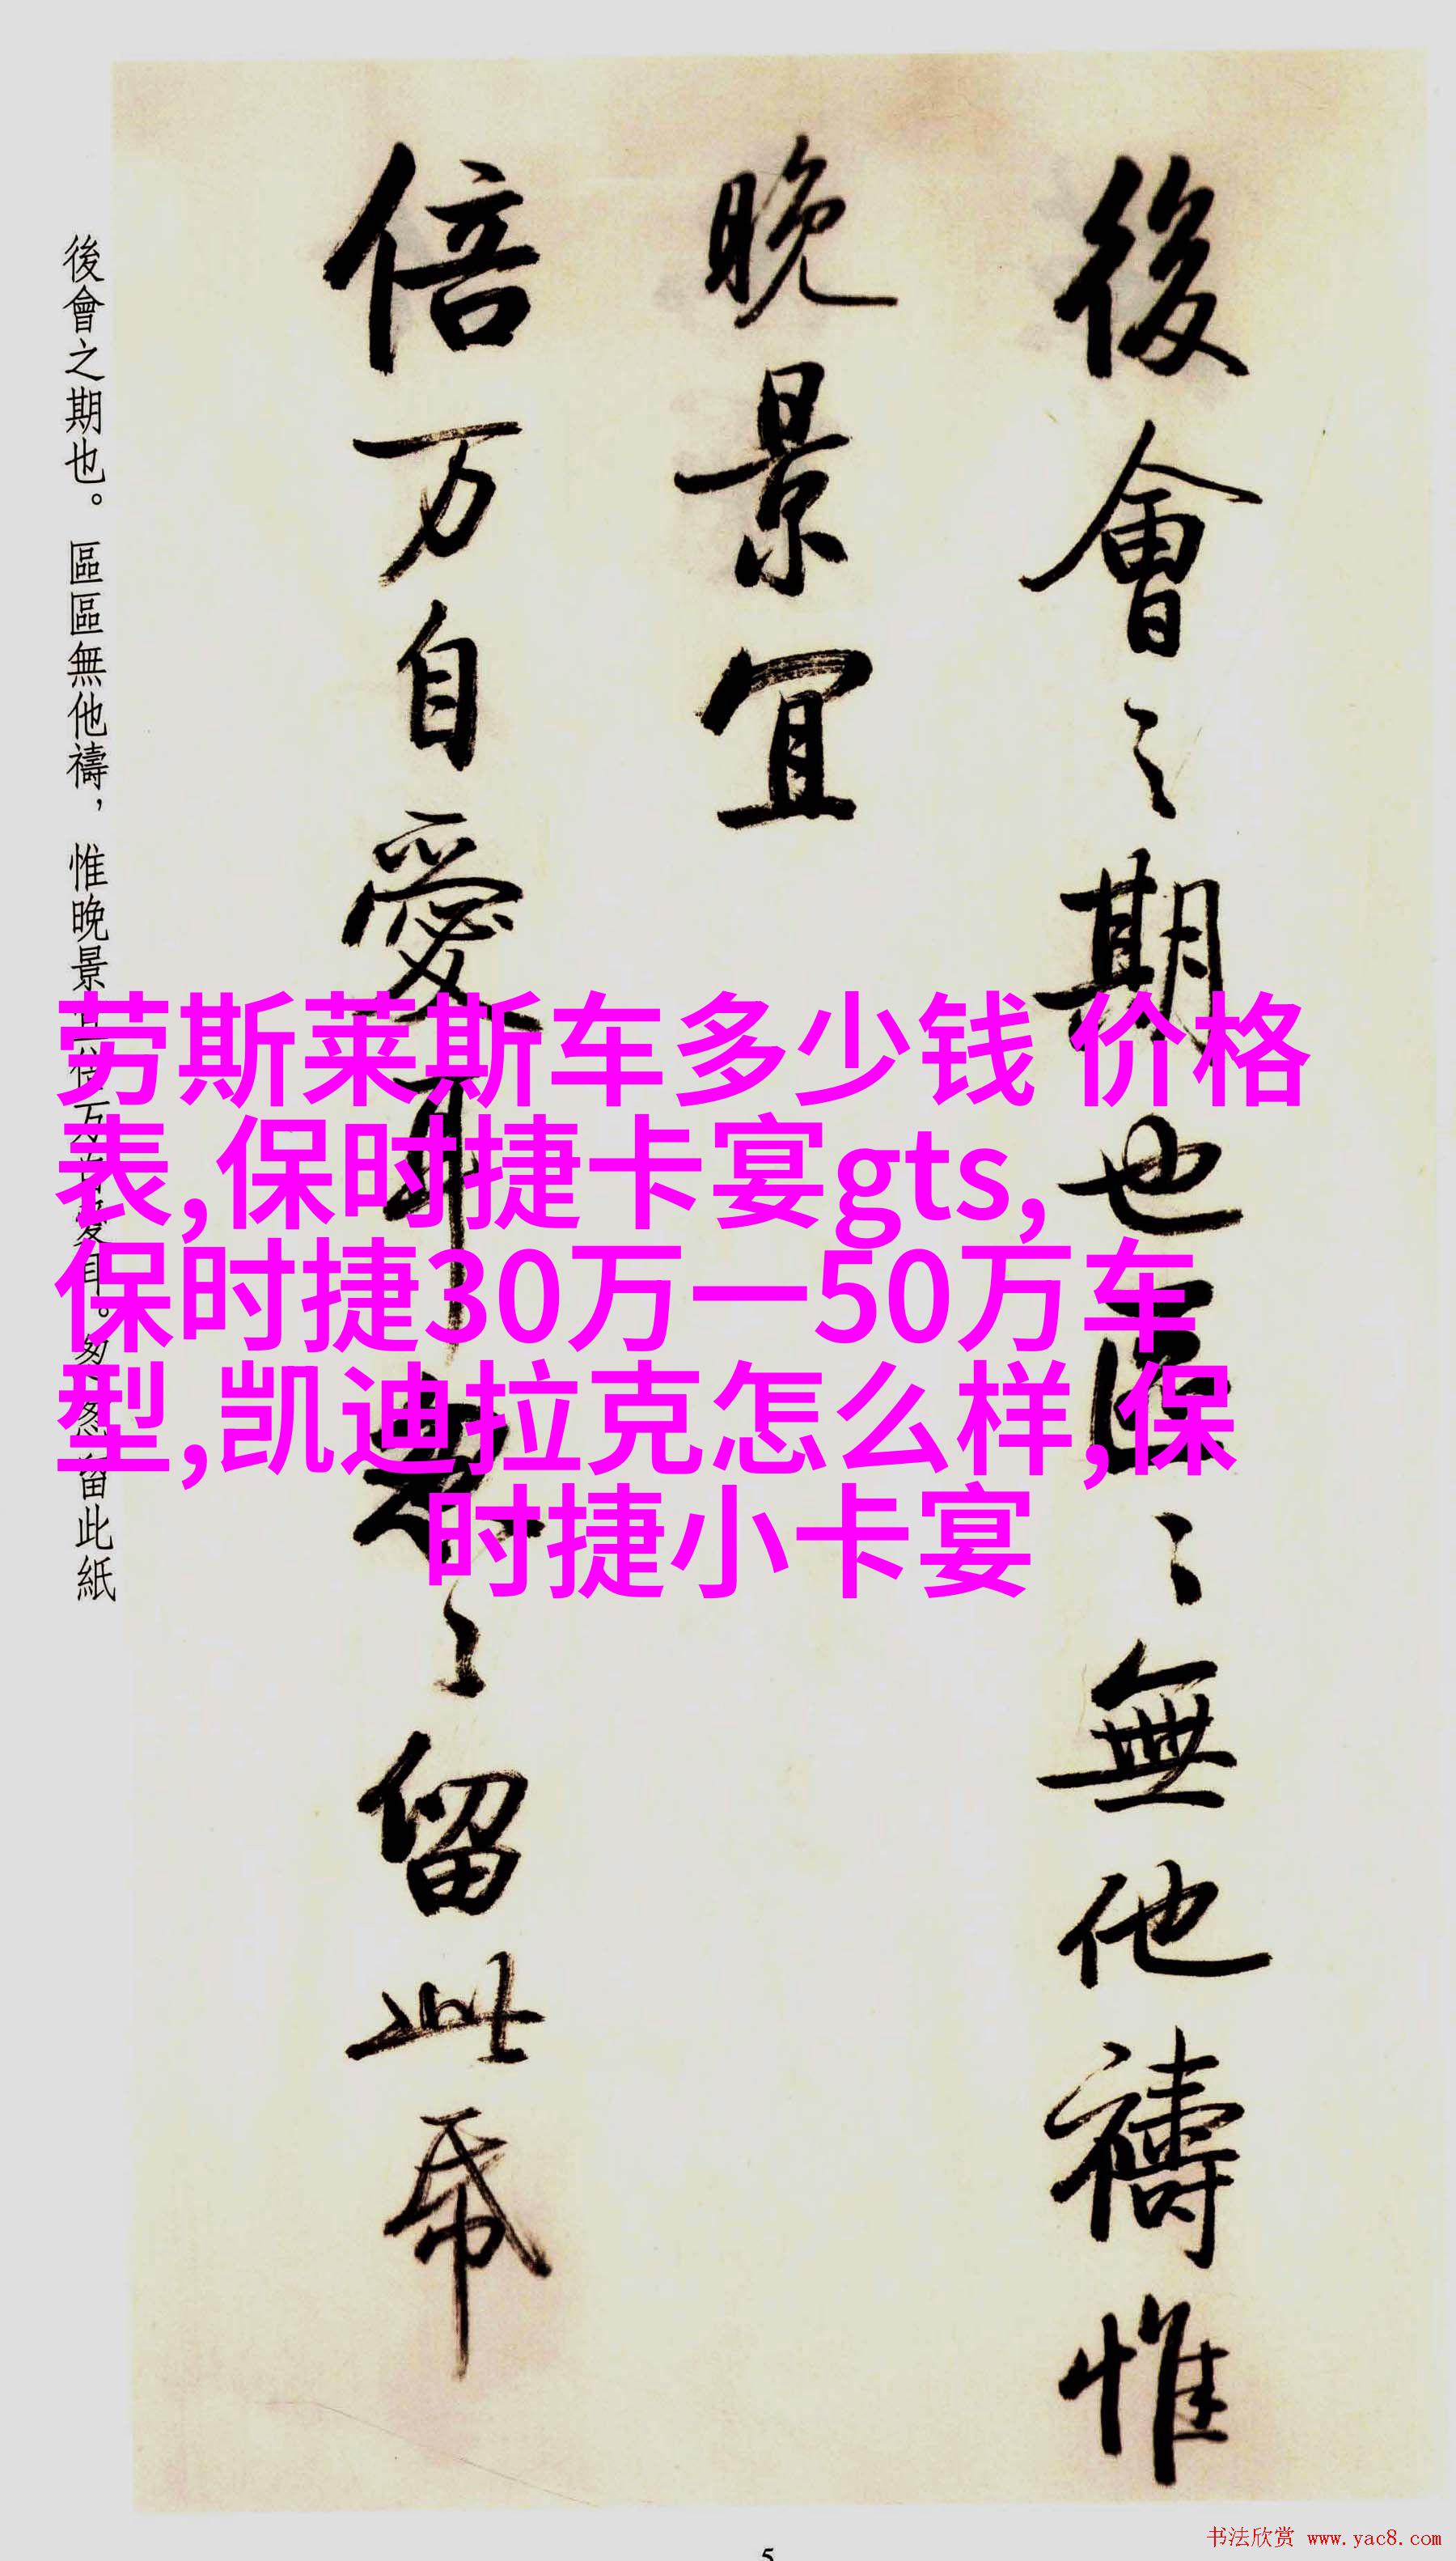 後會之期也區〻無他禱惟
晚景宜
倍万自愛耳怱〻留此帋
後會之期也。區區無他禱，惟晚景宜倍万自愛耳。怱怱留此紙
劳斯莱斯车多少钱 价格
表,保时捷卡宴gts,
保时捷30万一50万车
型,凯迪拉克怎么样,保
时捷小卡宴
书法欣赏 www.yac8.com
5